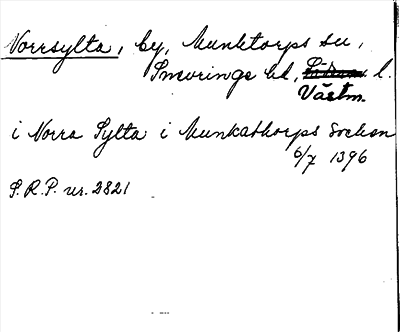 Norrsylta, by, Munktorps sn,
Snevringe hd, l.
Västm.
i Norra Sylta i Munkathorps Sochen
6/7 1396
S.R.P. nr. 2821